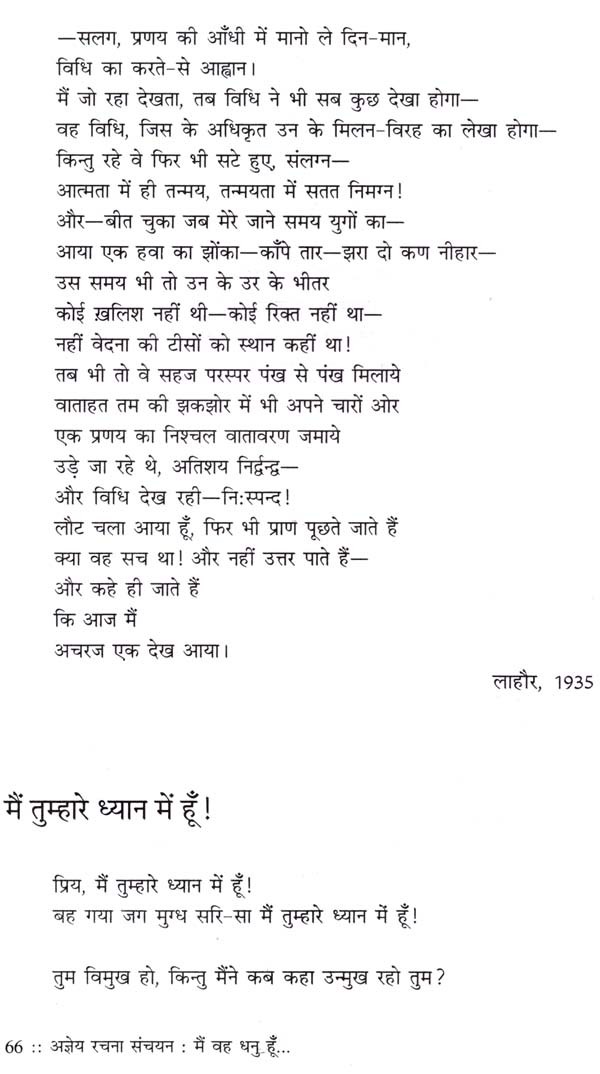 —सलग, प्रणय की आँधी में मानो ले दिन-मान,
विधि का करते-से आह्वान।
मैं जो रहा देखता, तब विधि ने भी सब कुछ देखा होगा—
वह विधि, जिस के अधिकृत उन के मिलन-विरह का लेखा होगा—
किन्तु रहे वे फिर भी सटे हुए, संलग्न—
आत्मता में ही तन्मय, तन्मयता में सतत निमग्न!
और—बीत चुका जब मेरे जाने समय युगों का—
आया एक हवा का झोंका—काँपे तार—झरा दो कण नीहार—
उस समय भी तो उन के उर के भीतर
कोई ख़लिश नहीं थी—कोई रिक्त नहीं था—
नहीं वेदना की टीसों को स्थान कहीं था!
तब भी तो वे सहज परस्पर पंख से पंख मिलाये
वाताहत तम की झकझोर में भी अपने चारों ओर
एक प्रणय का निश्चल वातावरण जमाये
उड़े जा रहे थे, अतिशय निर्द्वन्द्व—
और विधि देख रही—नि:स्पन्द!
लौट चला आया हूँ, फिर भी प्राण पूछते जाते हैं
क्या वह सच था! और नहीं उत्तर पाते हैं—
और कहे ही जाते हैं
कि आज मैं
अचरज एक देख आया।
लाहौर, 1935
मैं तुम्हारे ध्यान में हूँ!
प्रिय, मैं तुम्हारे ध्यान में हूँ!
बह गया जग मुग्ध सरि-सा मैं तुम्हारे ध्यान में हूँ!
तुम विमुख हो, किन्तु मैंने कब कहा उन्मुख रहो तुम?
66 :: अज्ञेय रचना संचयन : मैं वह धनु हूँ...